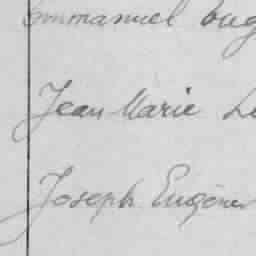 Emmanuel Eug
Jean Marie Le
Joseph Eugène